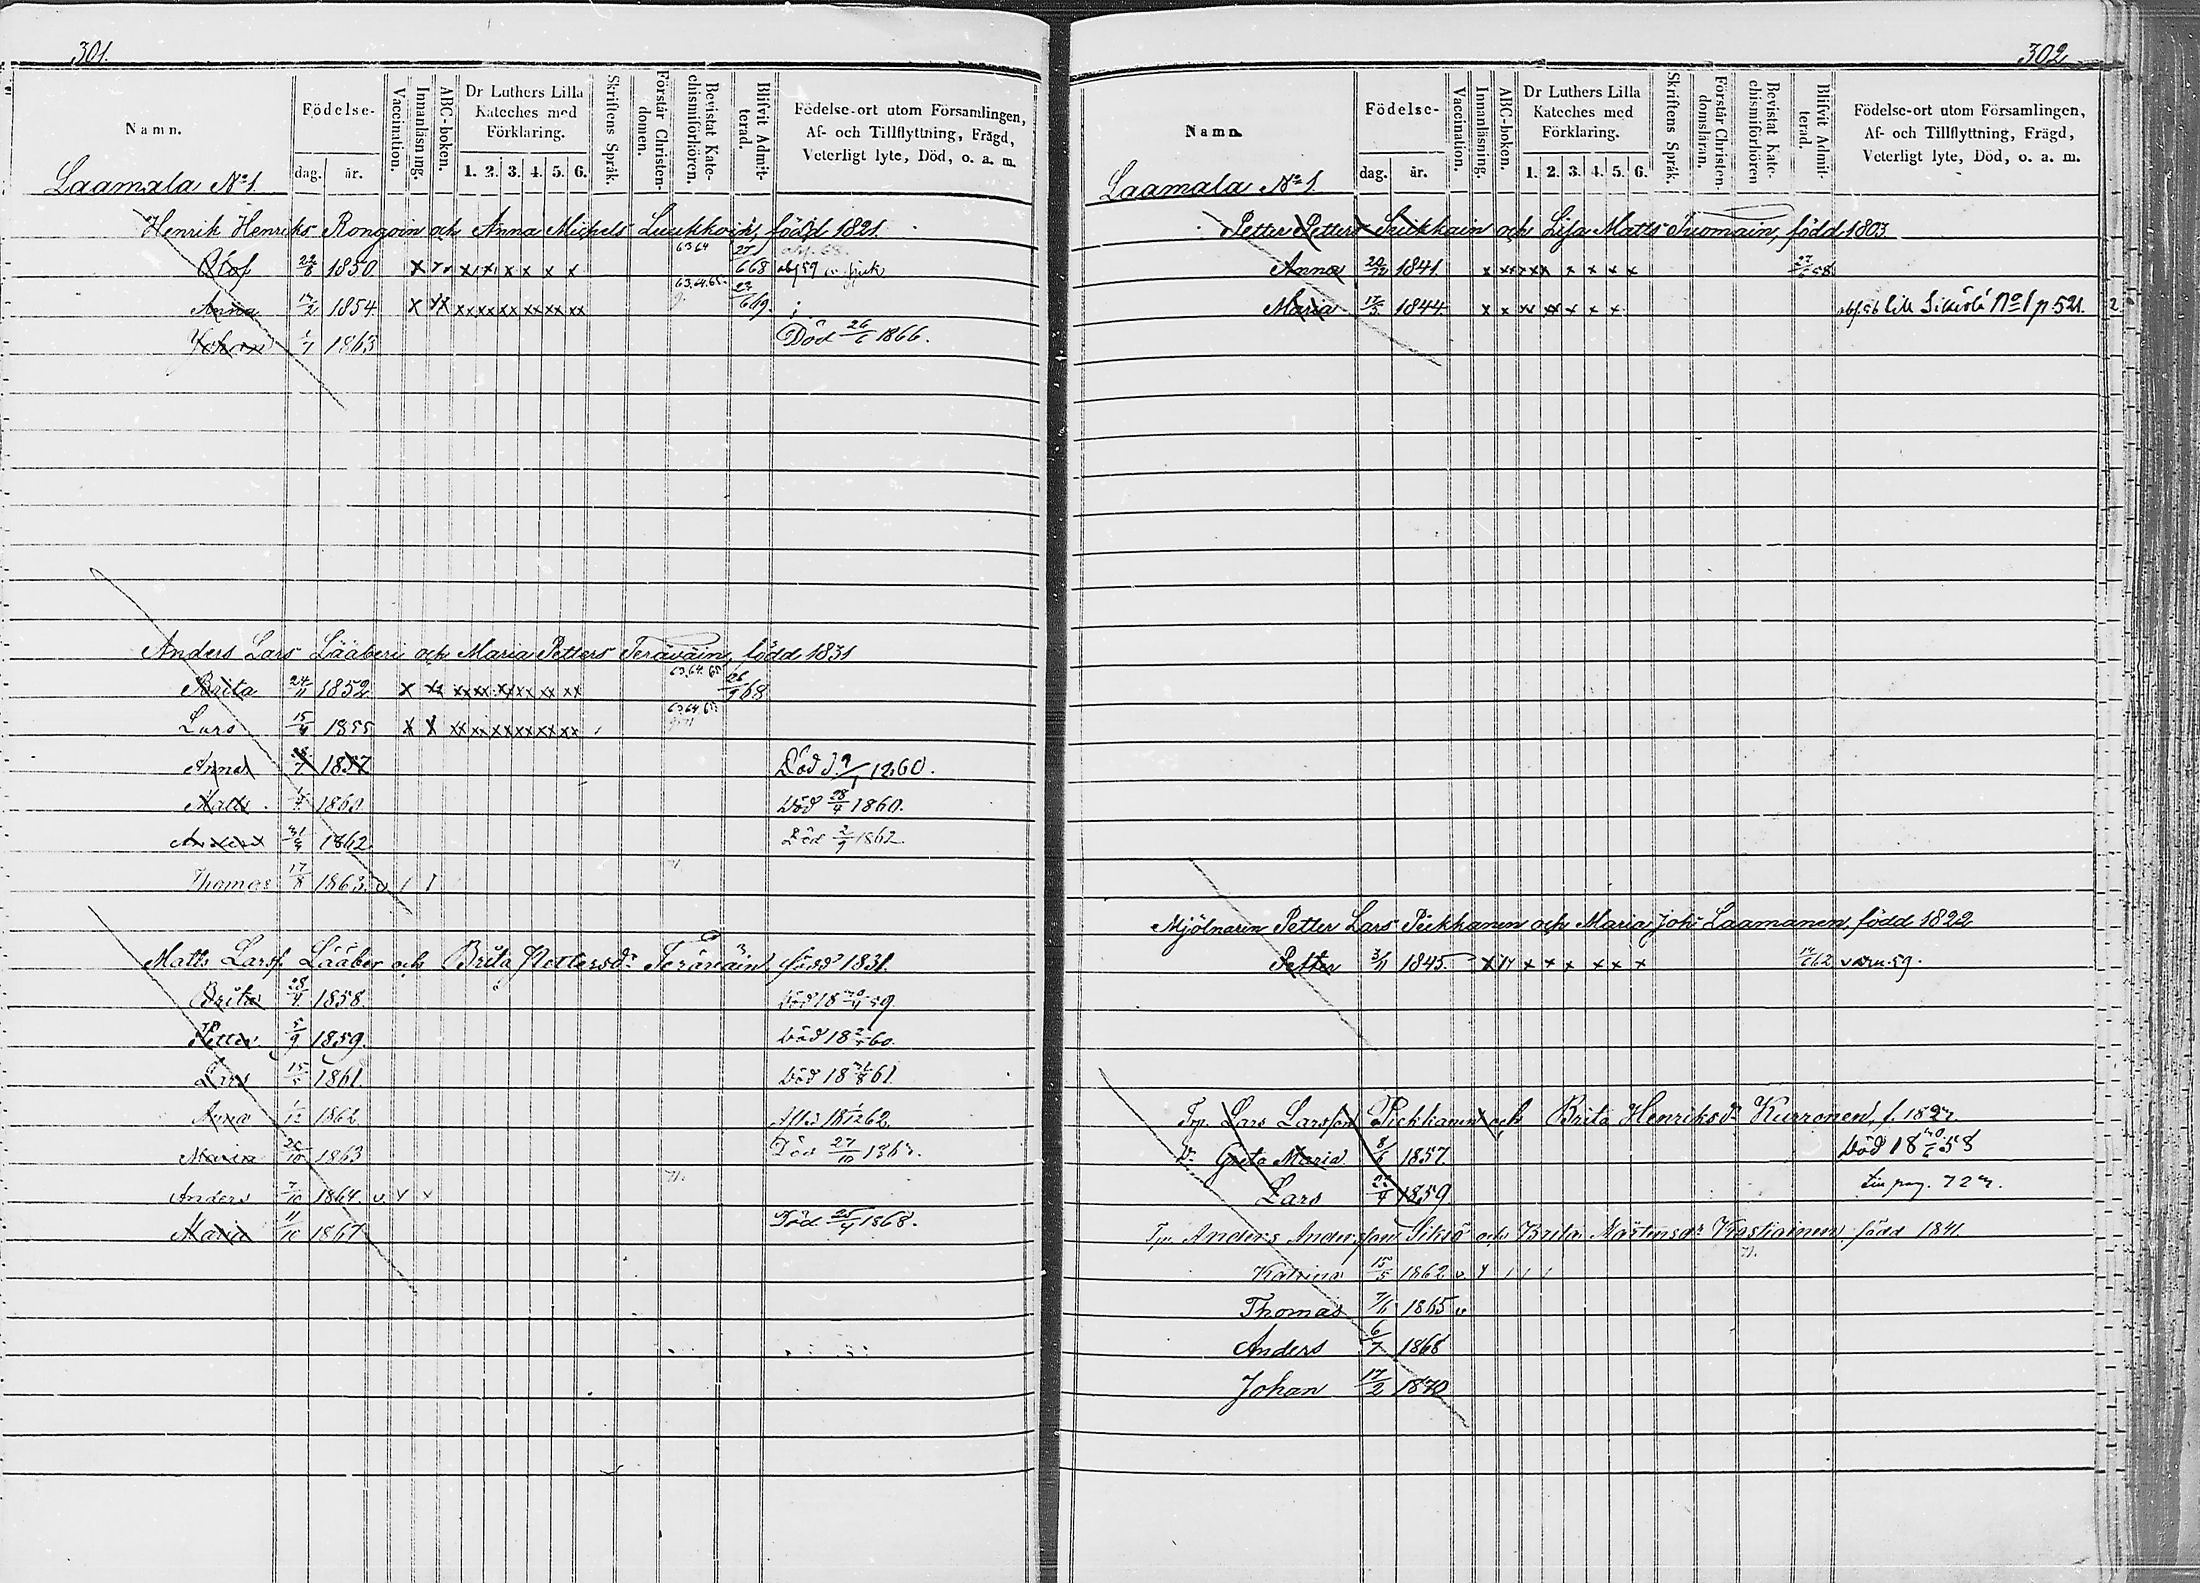 301.
Namn.
Födelse-
dag. år.
Vaccination.
Innanläsning.
ABC-boken.
Dr Luthers Lilla Kateches med Förklaring.
1. 2. 3. 4. 5. 6.
Skriftens Språk.
Förstår Christendomen.
Bevistat Katechismiförhören.
Blifvit Admitterad.
Födelse-ort utom Församlingen,
Af- och Tillflyttning, Frägd,
Veterligt lyte, Död, o. a. m.
Laamala No 1
Henrik Henriks Rongoin och Anna Michels Luukkoin, född 1821.
63 64
Olof 22/8 1850 x x x x x x 668
63.64.65.
Anna 17/2 1854 x xx xx xx xx xx xx xx 669.
Johan 1/7 1863 Död 26/6 1866.
Anders Lars Lääberi och Maria Petters Teräväin, född 1831
63.64.65
Brita 24/11 1852 x xx xx xx xx xx xx xx 26/9 68
63 64 65
Lars 15/4 1855 x x xx xx xx xx xx xx
Anna 1857 Död 1860.
Matts 1860 Död 28/4 1860.
Anders 1862 Död 2/9 1862.
71.
Thomas 17/8 1863. v
Matts Larss. Lääber och Brita Pettersdr Teräväin, född 1831.
Brita 28/4 1858. Död 18 59
Petter 5/9 1859. Död 18 60.
Lars 1861. Död 18 61.
Anna 1/12 1862 18 1/12 62.
Maria 26/10 1863 Död 27/10 1863.
71.
Anders 7/10 1864. v
Maria 11/10 1867 Död 25/4 1868.
302
Namn.
Födelse-
dag. år.
Vaccination.
Innanläsning.
ABC-boken.
Dr Luthers Lilla Kateches med Förklaring.
1. 2. 3. 4. 5. 6.
Skriftens Språk.
Förstår Christendomsläran.
Bevistat Katechismiförhören
Blifvit Admitterad.
Födelse-ort utom Församlingen,
Af- och Tillflyttning, Frägd,
Veterligt lyte, Död, o. a. m.
Laamala No 1.
Petter Petters och Lisa Matts Tuomain, född 1803
Anna 20/12 1841. x xx xx x x x x 27/6 58
Maria 17/3 1844 x x xx xx x x x No 1 p 521.
Mjölnarin Petter Lars Pickhanen och Maria Johs Laamanen, född 1822
Petter 3/11 1845. x x x x x x x 62
Lars Larsson Pickhanen och Brita Henriksdr Kurronen, f.
Greta Maria 8/6 1857. Död 18 58
Lars 1859
Anders Andersson Siksiö och Brita Mårtensdr född 1841.
71.
Katrina 15/5 1862 v
Thomas 7/6 1865 v
Anders 6/7 1868
Johan 17/2 1870